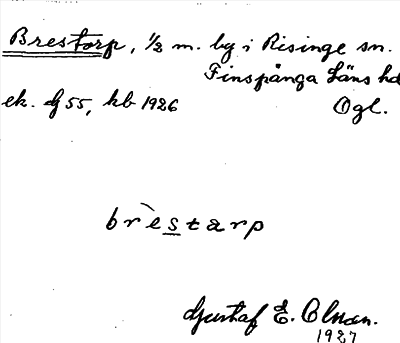 Brestorp, 1/2 m. by i Risinge sn.
Finspånga läns hd
ek. bl 55, kb 1926 Ögl.
brèstarp
Gustaf E. Olman.
1927